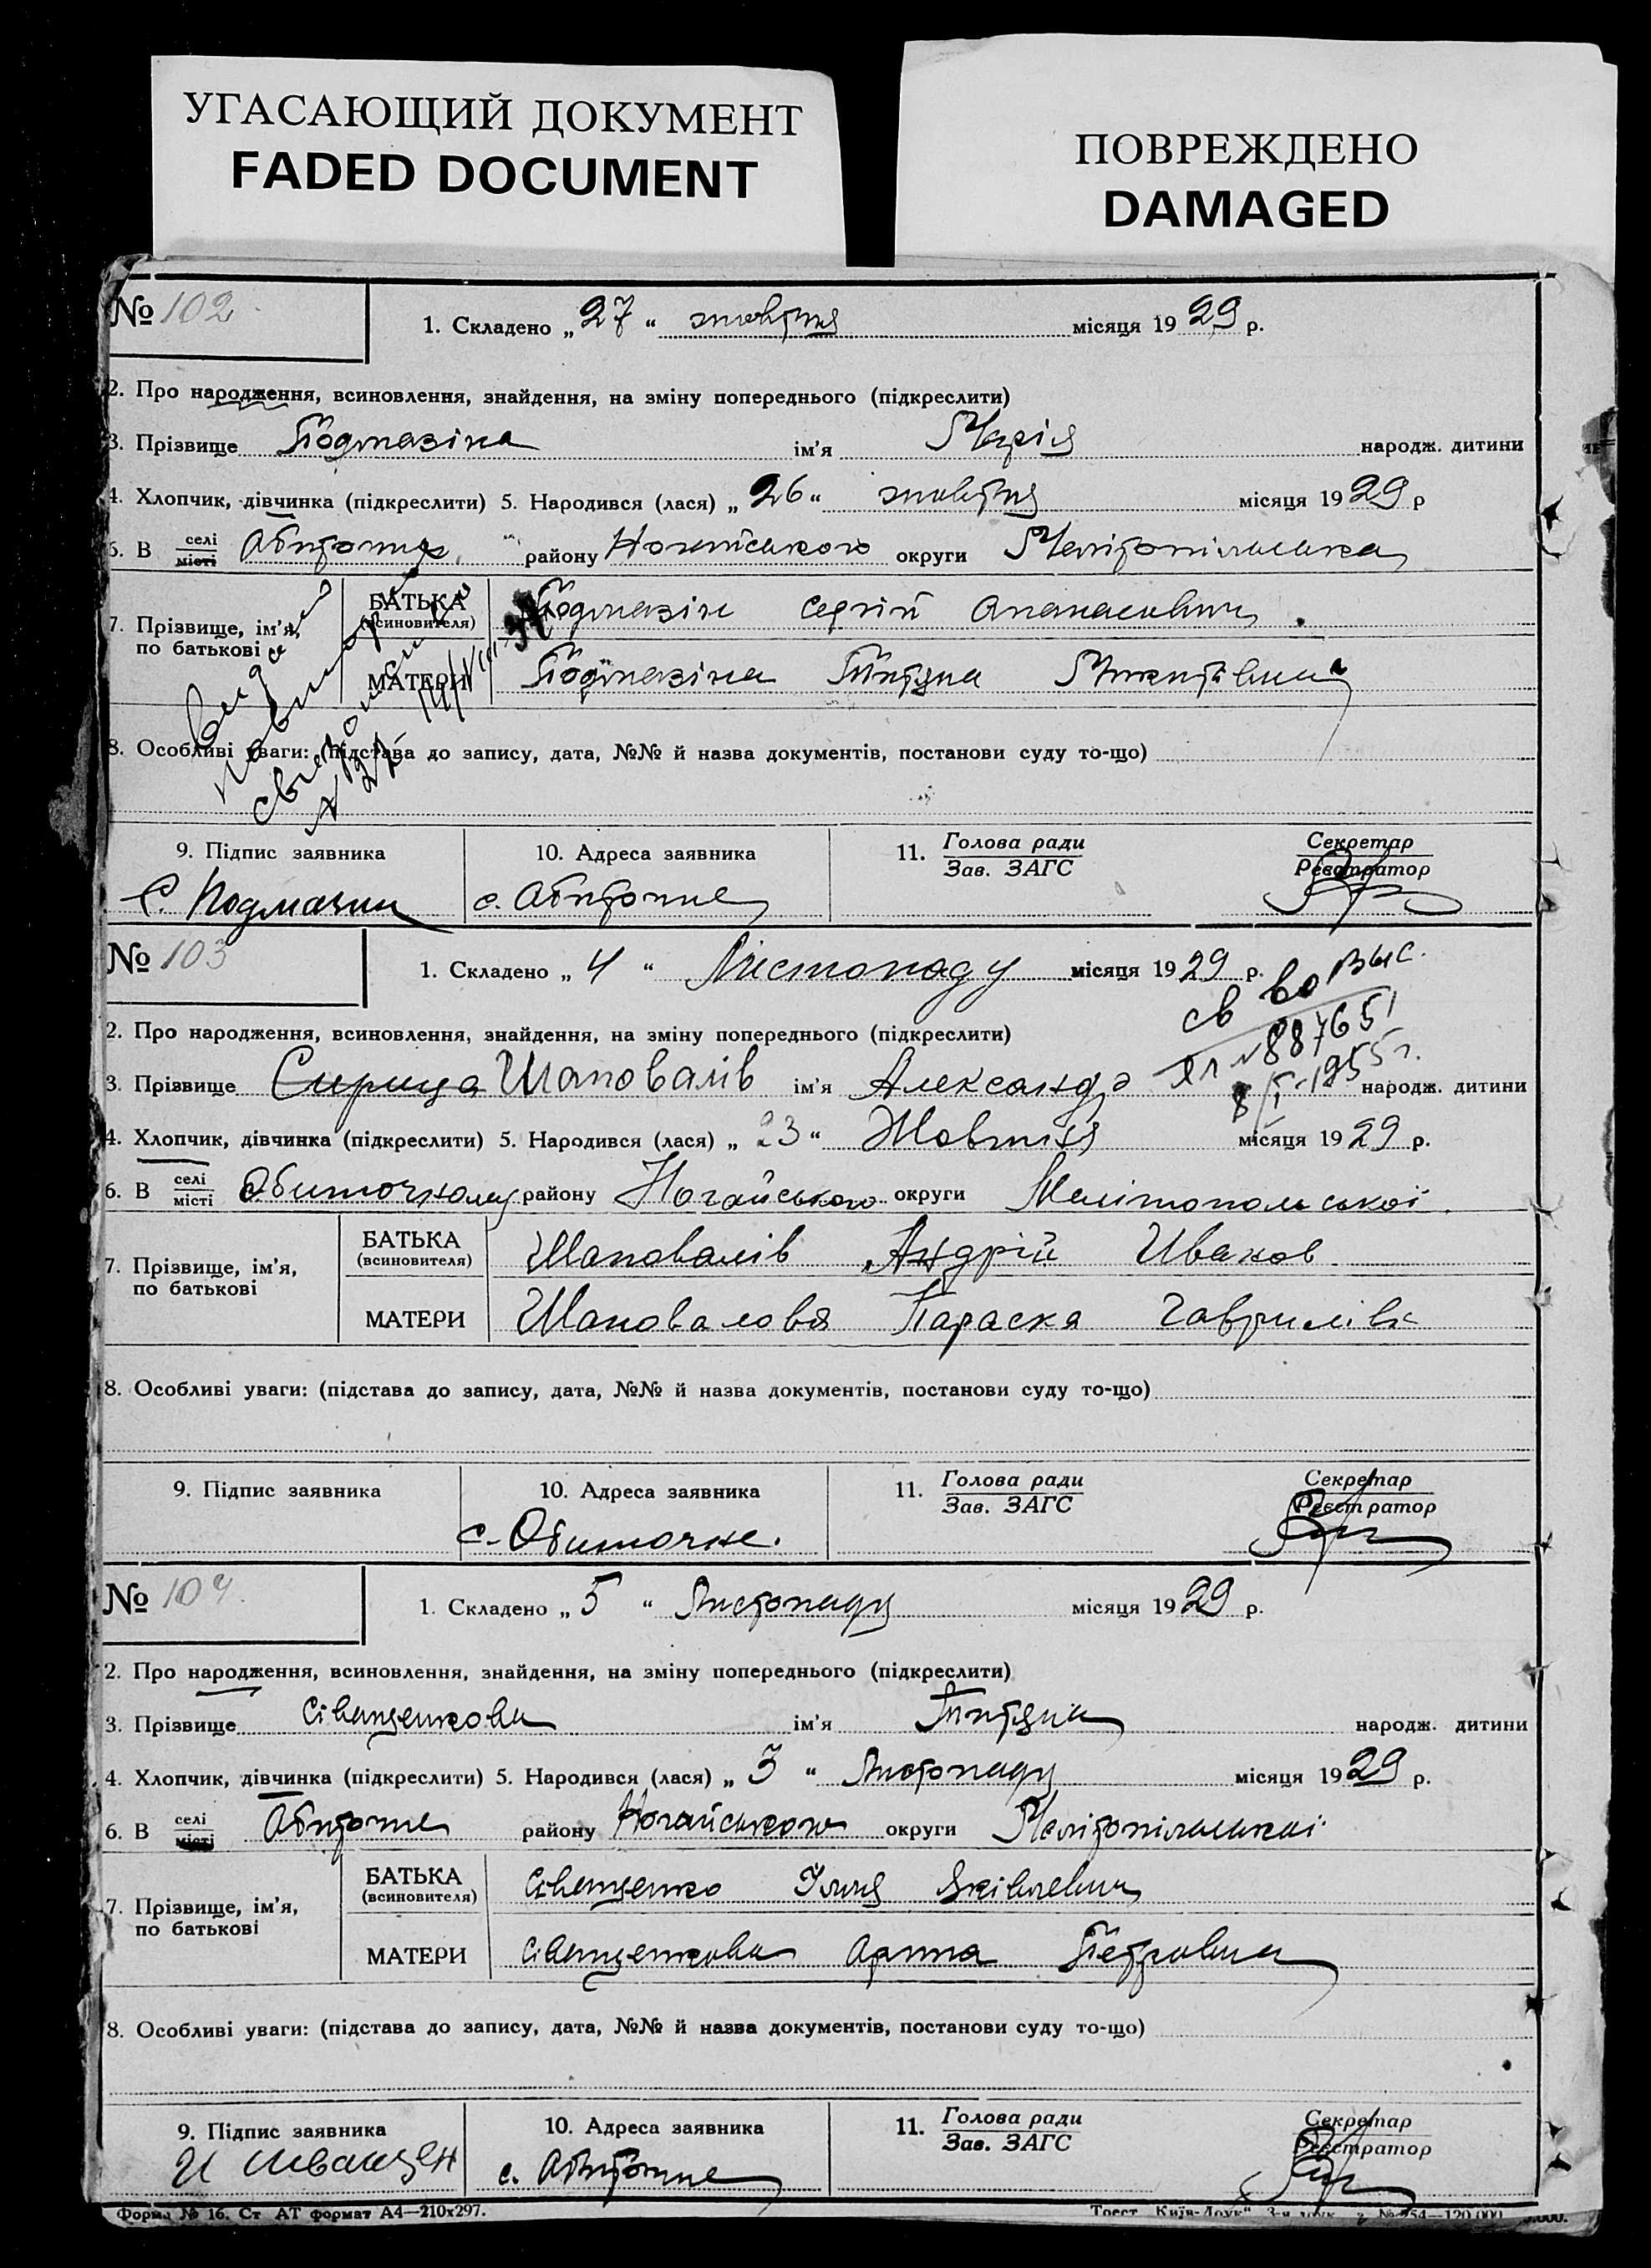 УГАСАЮЩИЙ ДОКУМЕНТ
FADED DOCUMENT
ПОВРЕЖДЕНО
DAMAGED
№ 102
1. Складено „ 27 “ жовтня місяця 19 29 р.
2. Про народження, всиновлення, знайдення, на зміну попереднього (підкреслити)
3. Прізвище Подмазіна ім'я Марія народж. дитини
4. Хлопчик, дівчинка (підкреслити) 5. Народився (лася) „ 26 “ жовтня місяця 19 29 р
6. В селі/місті Обиточне району Ногайського округи Мелітопільська
7. Прізвище, ім'я, по батькові
БАТЬКА (всиновителя) Подмазін Сергій Опанасович
МАТЕРИ Подмазіна Титяна Микитівна
8. Особливі уваги: (підстава до запису, дата, №№ й назва документів, постанови суду то-що)
9. Підпис заявника
10. Адреса заявника
11. Голова ради
Зав. ЗАГС
Секретар
Реєстратор
С. Подмазин
с. Обиточне
№ 103
1. Складено „ 4 “ Листопаду місяця 19 29 р.
св во выс.
2. Про народження, всиновлення, знайдення, на зміну попереднього (підкреслити)
№887651
3. Прізвище Сирица Шаповалів ім'я Александр народж. дитини
8/I-1955г.
4. Хлопчик, дівчинка (підкреслити) 5. Народився (лася) „ 23 “ Жовтня місяця 19 29 р.
6. В селі/місті Обиточному району Ногайського округи Мелітопольської
7. Прізвище, ім'я, по батькові
БАТЬКА (всиновителя) Шаповалів Андрій Иванов
МАТЕРИ Шаповалова Параска Гаврилівн
8. Особливі уваги: (підстава до запису, дата, №№ й назва документів, постанови суду то-що)
9. Підпис заявника
10. Адреса заявника
11. Голова ради
Зав. ЗАГС
Секретар
Реєстратор
с. Обиточне.
№ 104
1. Складено „ 5 “ Листопаду місяця 19 29 р.
2. Про народження, всиновлення, знайдення, на зміну попереднього (підкреслити)
3. Прізвище Сіващенкова ім'я Титяна народж. дитини
4. Хлопчик, дівчинка (підкреслити) 5. Народився (лася) „ 3 “ Листопаду місяця 19 29 р.
6. В селі/місті Обиточне району Ногайського округи Мелітопільської
7. Прізвище, ім'я, по батькові
БАТЬКА (всиновителя) Сіващенко Ілля Яківлевич
МАТЕРИ Сіващенкова Орина Петровна
8. Особливі уваги: (підстава до запису, дата, №№ й назва документів, постанови суду то-що)
9. Підпис заявника
10. Адреса заявника
11. Голова ради
Зав. ЗАГС
Секретар
Реєстратор
И Сиващен
с. Обиточне
Форма № 16. Ст АТ формат А4—210х297.
Трест „Київ-Друк“ 3-я друк. з. №254—120.000